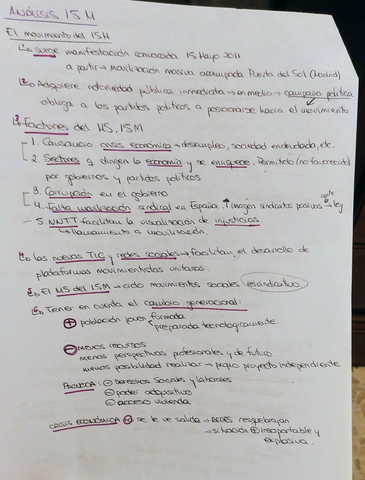 ANÁLISIS 15M
El movimiento del 15M
1. Surge manifestación convocada 15 Mayo 2011
a partir → movilización masiva acampada Puerta del Sol (Madrid)
2. Adquiere notoriedad pública inmediata → en medio → campaña política
obliga a los partidos políticos a posicionarse hacia el movimiento
3. Factores del MS, 15M
1. Causa crisis económica → desempleo, sociedad endeudada, etc.
2. Sectores q dirigen la economía y se enriquecen. Permitido (no favorecido)
por gobiernos y partidos políticos
3. Corrupción en el gobierno
4. Falta movilización sindical en España. ↑ Imagen sindicatos pasivos → ley
5. NNTT facilitan la visualización de injusticias
llamamiento a movilización.
4. Las nuevas TIC y redes sociales → facilitan el desarrollo de
plataformas movimientistas unitarias.
5. El MS del 15M → ciclo movimientos sociales reivindicativo
6. Tener en cuenta el cambio generacional:
+ población joven formada
preparada tecnológicamente
- menos recursos
menos perspectivas profesionales y de futuro
menos posibilidad realizar → propio proyecto independiente
PROVOCA: - derechos sociales y laborales
- poder adquisitivo
- acceso vivienda
CRISIS ECONÓMICA no se le ve salida → REDES resquebrajan
→ situación + insoportable y
explosiva.